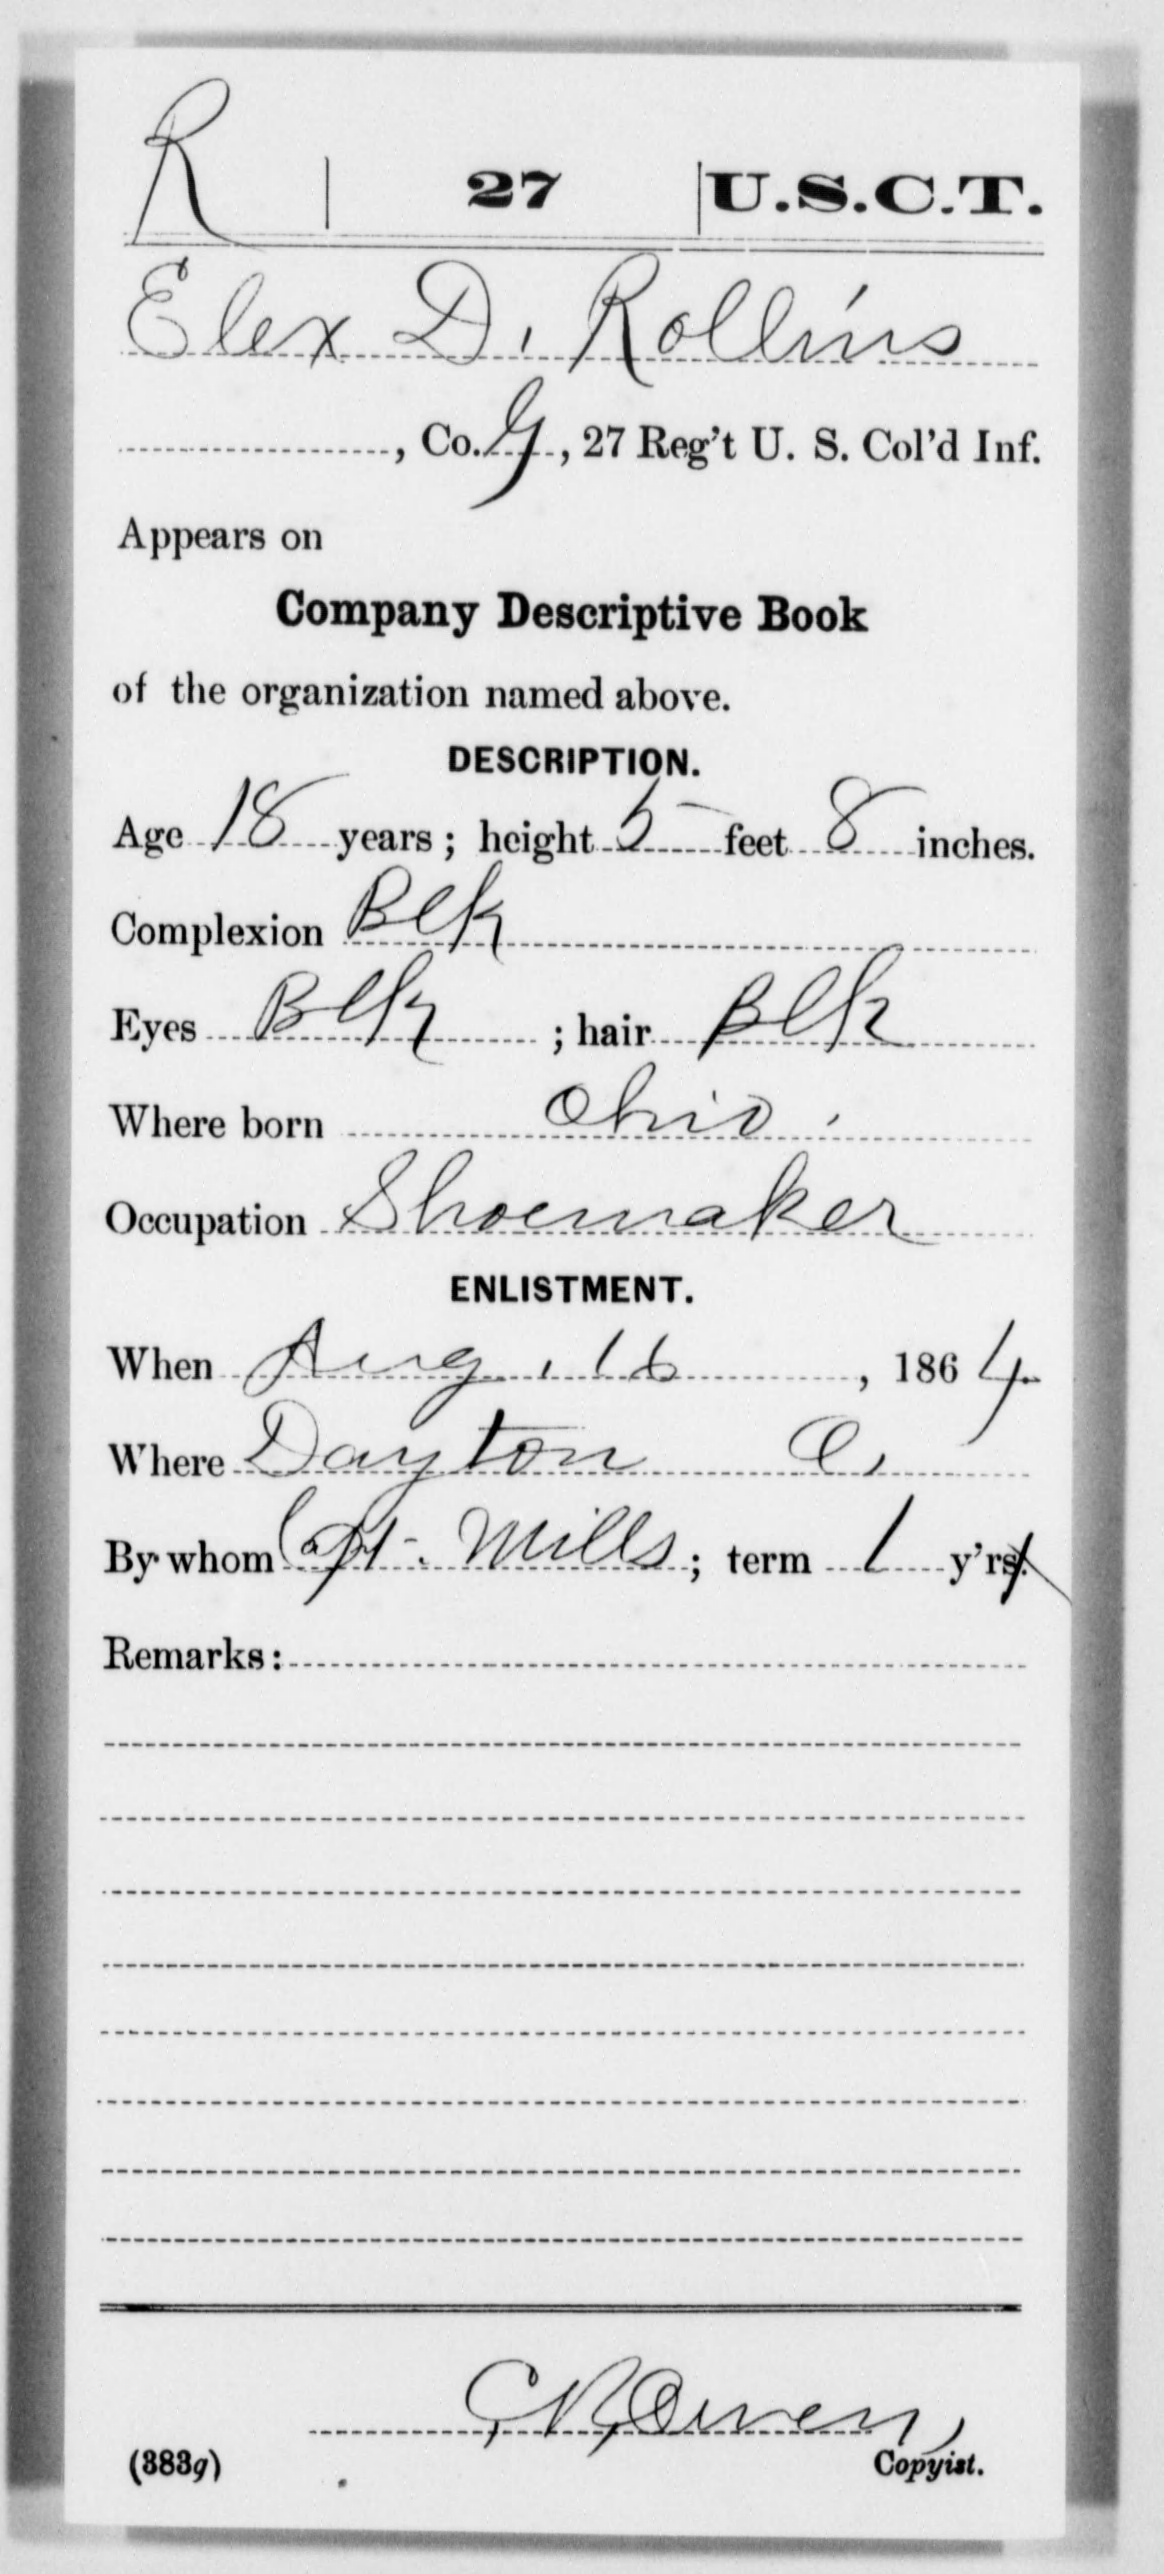 R | 27 | U.S.C.T.
Elex D. Rollins
, Co. G, 27 Reg't U. S. Col'd Inf.
Appears on
Company Descriptive Book
of the organization named above.
DESCRIPTION.
Age 18 years; height 5 feet 8 inches.
Complexion Blk
Eyes Blk ; hair Blk
Where born Ohio.
Occupation Shoemaker
ENLISTMENT.
When Aug. 16, 1864.
Where Dayton O.
By whom Capt. Mills; term 1 y'rs.
Remarks:
C R Owen,
(383g) Copyist.